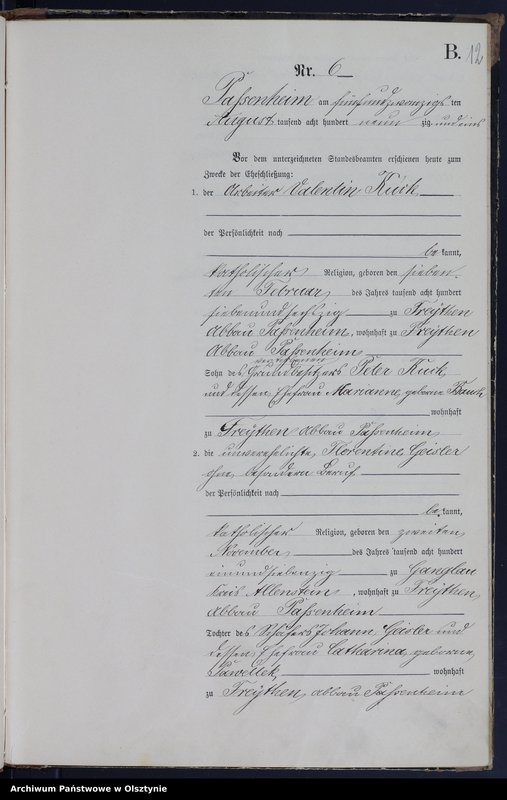 B. 12
Nr. 6
Passenheim am fünfundzwanzigs ten
August tausend acht hundert neun zig und eins
Vor dem unterzeichneten Standesbeamten erschienen heute zum
Zwecke der Eheschließung:
1. der Arbeiter Valentin Kuck
der Persönlichkeit nach
be kannt,
katholischer Religion, geboren den sieben-
ten Februar des Jahres tausend acht hundert
siebenundsechzig zu Freythen
Abbau Passenheim, wohnhaft zu Freythen
Abbau Passenheim
verstorbenen
Sohn des Grundbesitzers Peter Kuck
und dessen Ehefrau Marianne, geborene
wohnhaft
zu Freythen Abbau Passenheim
2. die unverehelichte Florentine Geisler
ohne besondern Beruf
der Persönlichkeit nach
be kannt,
katholischer Religion, geboren den zweiten
November des Jahres tausend acht hundert
einundsiebenzig zu Ganglau
Kreis Allenstein, wohnhaft zu Freythen
Abbau Passenheim
Tochter des Schäfers Johann Geisler und
dessen Ehefrau Catharina, geborene
Pawellek, wohnhaft
zu Freythen, abbau Passenheim
Archiwum Państwowe w Olsztynie